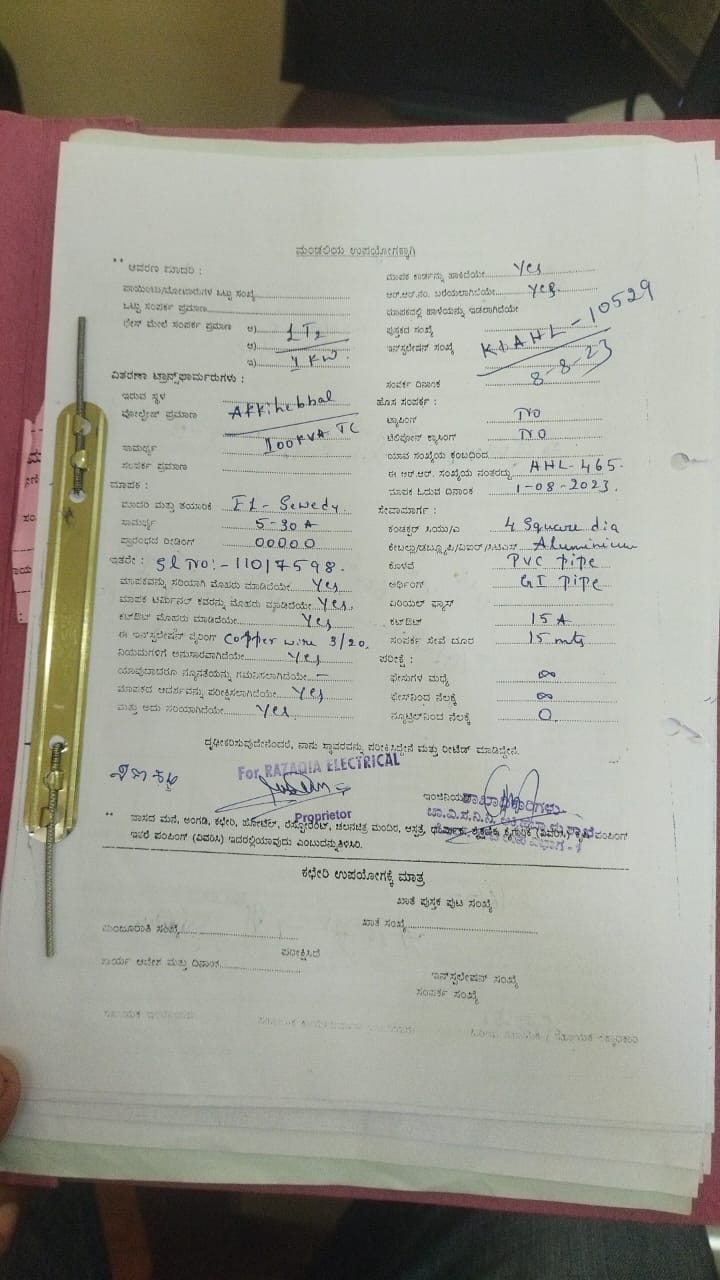 ಮಂಡಳಿಯ ಉಪಯೋಗಕ್ಕಾಗಿ
** ಆವರಣ ಮಾದರಿ :
ಪಾಯಿಂಟು/ಮೋಟಾರುಗಳ ಒಟ್ಟು ಸಂಖ್ಯೆ
ಒಟ್ಟು ಸಂಪರ್ಕ ಪ್ರಮಾಣ
ಫೇಸ್ ಮೇಲೆ ಸಂಪರ್ಕ ಪ್ರಮಾಣ ಅ) LT2
ಆ)
ಇ) 1 KW.
ವಿತರಣಾ ಟ್ರಾನ್ಸ್‌ಫಾರ್ಮರುಗಳು :
ಇರುವ ಸ್ಥಳ Akkihebbal
ವೋಲ್ಟೇಜ್ ಪ್ರಮಾಣ
ಸಾಮರ್ಥ್ಯ 100KVA TC
ಸಂಪರ್ಕ ಪ್ರಮಾಣ
ಮಾಪಕ :
ಮಾದರಿ ಮತ್ತು ತಯಾರಿಕೆ EL-Sewedy.
ಸಾಮರ್ಥ್ಯ 5-30A
ಪ್ರಾರಂಭದ ರೀಡಿಂಗ್ 00000
ಇತರೇ : Sl No:- 11017598.
ಮಾಪಕವನ್ನು ಸರಿಯಾಗಿ ಮೊಹರು ಮಾಡಿದೆಯೇ Yes
ಮಾಪಕ ಟರ್ಮಿನಲ್ ಕವರನ್ನು ಮೊಹರು ಮಾಡಿದೆಯೇ Yes,
ಕಟ್‌ಔಟ್ ಮೊಹರು ಮಾಡಿದೆಯೇ Yes
ಈ ಇನ್‌ಸ್ಟಲೇಷನ್ ವೈರಿಂಗ್ Copper wire 3/20,
ನಿಯಮಗಳಿಗೆ ಅನುಸಾರವಾಗಿದೆಯೇ Yes
ಯಾವುದಾದರೂ ನ್ಯೂನತೆಯನ್ನು ಗಮನಿಸಲಾಗಿದೆಯೇ –
ಮಾಪಕದ ಆದರ್ಶವನ್ನು ಪರೀಕ್ಷಿಸಲಾಗಿದೆಯೇ Yes
ಮತ್ತು ಅದು ಸರಿಯಾಗಿದೆಯೇ Yes
ಮಾಪಕ ಕಾರ್ಡನ್ನು ಹಾಕಿದೆಯೇ Yes
ಆರ್.ಆರ್.ನಂ. ಬರೆಯಲಾಗಿದೆಯೇ Yes.
ಮಾಪಕದಲ್ಲಿ ಹಾಳೆಯನ್ನು ಇಡಲಾಗಿದೆಯೇ
ಪುಸ್ತಕದ ಸಂಖ್ಯೆ
ಇನ್‌ಸ್ಟಲೇಷನ್ ಸಂಖ್ಯೆ KIAHL-10529
ಸಂಪರ್ಕ ದಿನಾಂಕ 8-8-23
ಹೊಸ ಸಂಪರ್ಕ :
ಟ್ಯಾಪಿಂಗ್ NO
ಟೆಲಿಫೋನ್ ಕ್ರಾಸಿಂಗ್ NO
ಯಾವ ಸಂಖ್ಯೆಯ ಕಂಬದಿಂದ
ಈ ಆರ್.ಆರ್. ಸಂಖ್ಯೆಯ ನಂತರದ್ದು AHL-465.
ಮಾಪಕ ಓದುವ ದಿನಾಂಕ 1-08-2023.
ಸೇವಾಮಾರ್ಗ :
ಕಂಡಕ್ಟರ್ ಸಿಯು/ಎ 4 Square dia
Aluminium
ಕೊಳವೆ PVC Pipe
ಅರ್ಥಿಂಗ್ GI Pipe
ಏರಿಯಲ್ ಫ್ಯೂಸ್
ಕಟ್‌ಔಟ್ 15A
ಸಂಪರ್ಕ ಸೇವೆ ದೂರ 15 mts
ಪರೀಕ್ಷೆ :
ಫೇಸುಗಳ ಮಧ್ಯೆ ∞
ಫೇಸ್‌ನಿಂದ ನೆಲಕ್ಕೆ ∞
ನ್ಯೂಟ್ರಲ್‌ನಿಂದ ನೆಲಕ್ಕೆ 0
ದೃಢೀಕರಿಸುವುದೇನೆಂದರೆ, ನಾನು ಸ್ಥಾವರವನ್ನು ಪರೀಕ್ಷಿಸಿದ್ದೇನೆ ಮತ್ತು ರೀಟೆಡ್ ಮಾಡಿದ್ದೇನೆ.
For RAZAQIA ELECTRICAL
Proprietor
ಶಾಖಾಧಿಕಾರಿಗಳು
** ವಾಸದ ಮನೆ, ಅಂಗಡಿ, ಕಛೇರಿ, ಹೋಟೆಲ್, ರೆಸ್ಟೋರೆಂಟ್, ಚಲನಚಿತ್ರ ಮಂದಿರ, ಆಸ್ಪತ್ರೆ, ಧಾರ್ಮಿಕ, ಶೈಕ್ಷಣಿಕ, ಕೈಗಾರಿಕೆ (ವಿವರಿಸಿ) ಪಂಪಿಂಗ್
ಇತರೆ ಪಂಪಿಂಗ್ (ವಿವರಿಸಿ) ಇದರಲ್ಲಿಯಾವುದು ಎಂಬುದನ್ನು ತಿಳಿಸಿರಿ.
ಕಛೇರಿ ಉಪಯೋಗಕ್ಕೆ ಮಾತ್ರ
ಖಾತೆ ಪುಸ್ತಕ ಪುಟ ಸಂಖ್ಯೆ
ಮಂಜೂರಾತಿ ಸಂಖ್ಯೆ
ಖಾತೆ ಸಂಖ್ಯೆ
ಪರೀಕ್ಷಿಸಿದೆ
ಕಾರ್ಯ ಆದೇಶ ಮತ್ತು ದಿನಾಂಕ
ಇನ್‌ಸ್ಟಲೇಷನ್ ಸಂಖ್ಯೆ
ಸಂಪರ್ಕ ಸಂಖ್ಯೆ